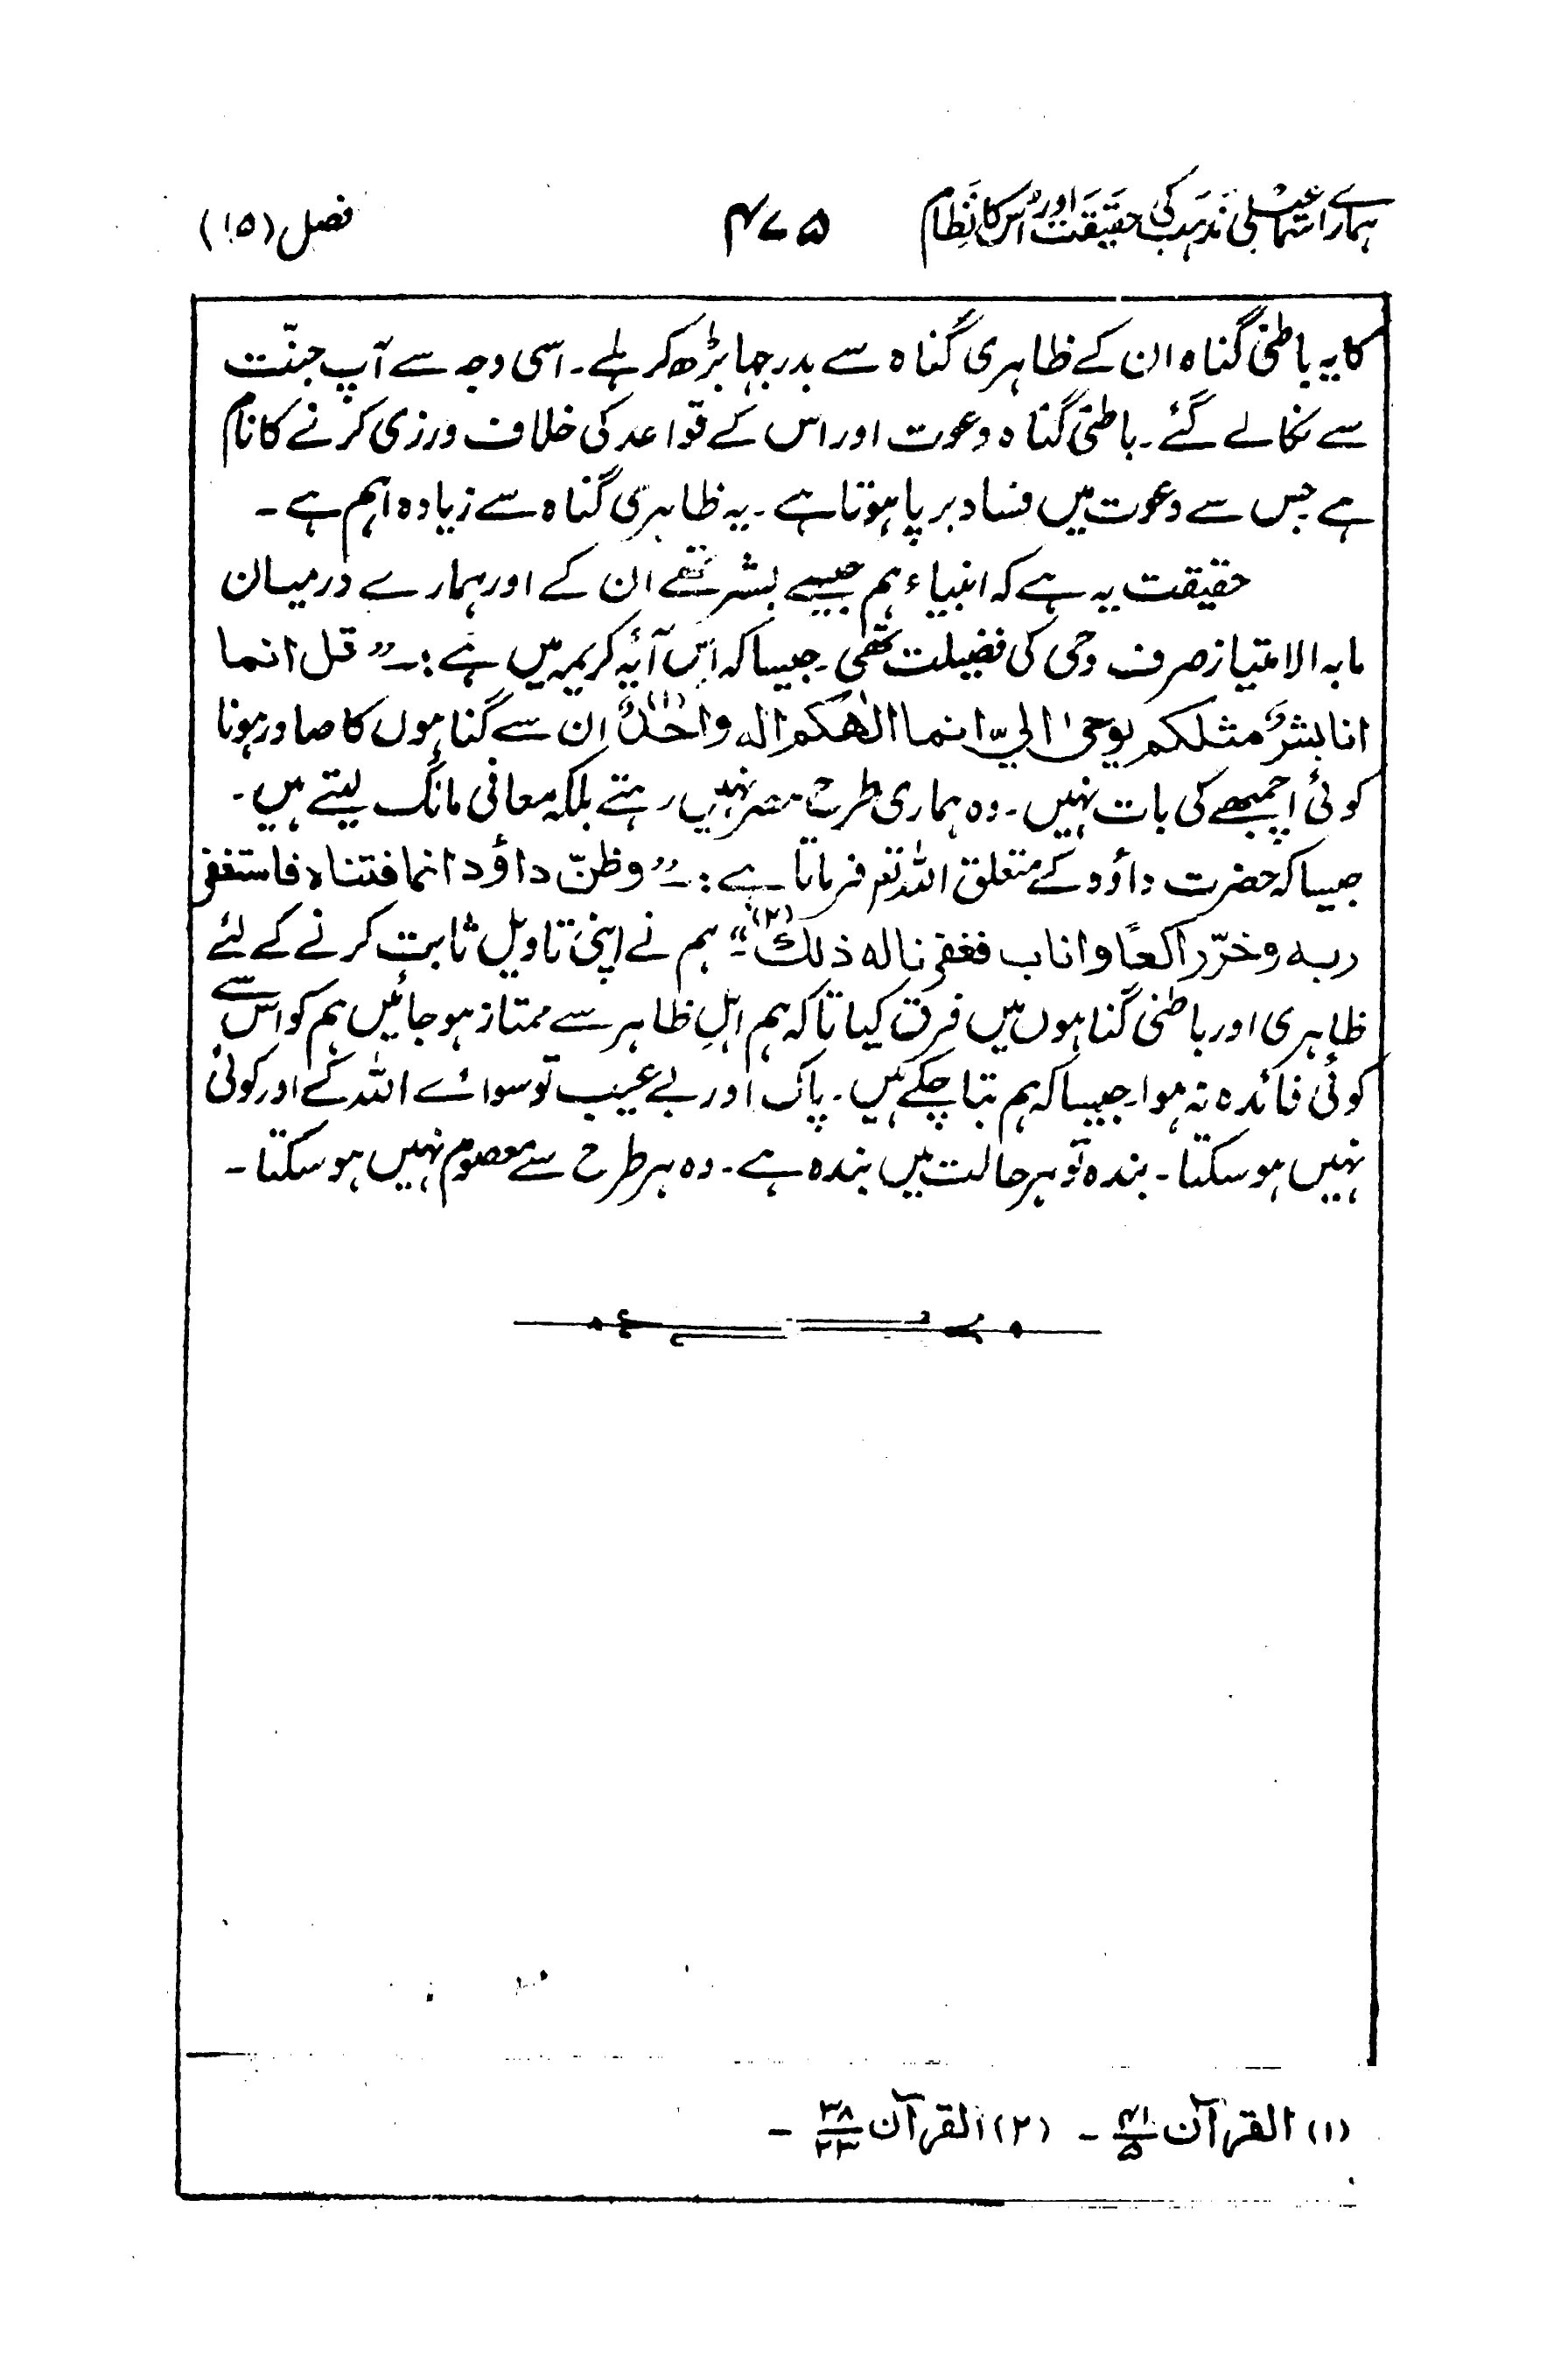 ہمارے اسمٰعیلی مذہب کی حقیقت اور اس کا نظام ۴۷۵ فصل (۱۵)
کا یہ باطنی گناہ ان کے ظاہری گناہ سے بدرجہا بڑھ کر ہے۔ اسی وجہ سے آپ جنّت
سے نکالے گئے۔ باطنی گناہ دعوت اور اس کے قواعد کی خلاف ورزی کرنے کا نام
ہے جس سے دعوت میں فساد برپا ہوتا ہے۔ یہ ظاہری گناہ سے زیادہ اہم ہے۔
حقیقت یہ ہے کہ انبیاء ہم جیسے بشر تھے ان کے اور ہمارے درمیان
مابہ الامتیاز صرف وحی کی فضیلت تھی۔ جیسا کہ اس آیۂ کریمہ میں ہے:۔ "قل انما
انا بشرٌ مثلکم یوحیٰ الیّ انما الٰھکم الہ واحدٌ (۱) ان سے گناہوں کا صادر ہونا
کوئی اچمبھے کی بات نہیں۔ وہ ہماری طرح مصر نہیں رہتے بلکہ معافی مانگ لیتے ہیں۔
جیسا کہ حضرت داؤد کے متعلق اللہ تعم فرماتا ہے:۔ "وظنّ داؤد انما فتناہ فاستغفر
ربہ وخرّ راکعًا واناب فغفرنا لہ ذلک"(۲)۔ ہم نے اپنی تاویل ثابت کرنے کے لئے
ظاہری اور باطنی گناہوں میں فرق کیا تاکہ ہم اہلِ ظاہر سے ممتاز ہو جائیں ہم کو اس سے
کوئی فائدہ نہ ہوا۔ جیسا کہ ہم بتا چکے ہیں۔ پاک اور بے عیب تو سوائے اللہ کے اور کوئی
نہیں ہو سکتا۔ بندہ تو ہر حالت میں بندہ ہے۔ وہ ہر طرح سے معصوم نہیں ہو سکتا۔
(۱) القرآن ۴۱/۵ ۔ (۲) القرآن ۳۸/۲۳ ۔